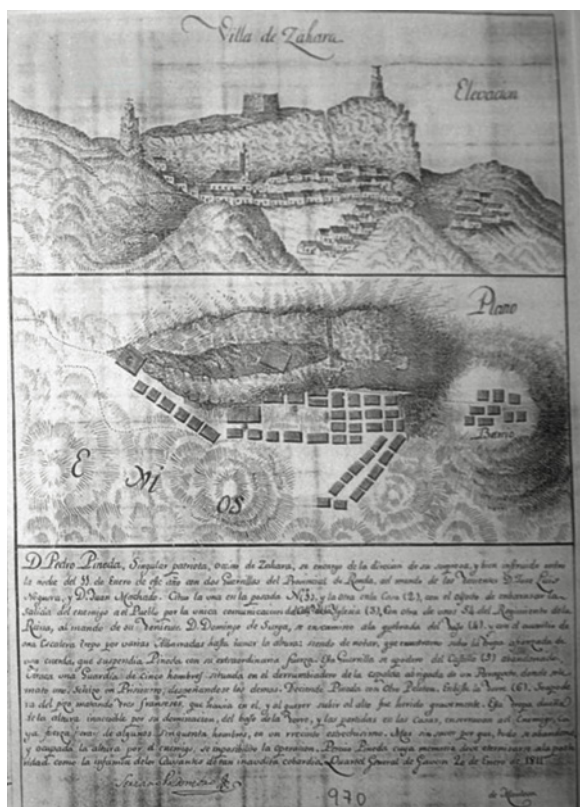 Villa de Zahara
Elevacion
Plano
Barrio
E Ni os
D. Pedro Pineda, Singular patriota, vecino de Zahara, se encargo de la direccion de su sorpresa, y bien
la noche del 11 de Enero de este año con dos Guerrillas del Provincial de Ronda, al mando de los Tenientes D. Juan Luis
Noguera, y D. Juan Machado. Cituo la una en la posada N.(1), y la otra en la Casa (2), con el objeto de embarazar la
salida del enemigo a el Pueblo por la unica comunicacion de la Iglesia (3). Con otra de unos 54 del Regimiento de la
al mando de su Teniente D. Domingo de se encamino ala quebrada del Tajo (4), y con el auxilio de
una Escalera trepo por varias hasta tomar la altura; siendo de notar, que
una cuerda, que suspendia Pineda con su extraordinaria fuerza. Esta Guerrilla se apodero del Castillo (5)
una Guardia de Cinco hombres, situada en el derrumbadero de la
uno, é hizo un Prisionero, despeñandose los demas. Deciende Pineda con Otro Peloton, Enbiste la Torre (6),
de matando tres franceses, que havia en el, y al quarto sobre el alto fue herido gravemente. Esta Tropa dueña
de la altura por su dominacion, del bajo de la Torre, y las partidas en las Casas, encerravan al Enemigo, Cu
ya fuerza era de algunos Cinquenta hombres, en un recinto estrechisimo. Mas sin saver por que, todo se abandona,
y ocupada la altura por el enemigo, se imposibilito la operacion. Pineda cuya memoria deve eternizarse ala poste
ridad como la infamia de los Causantes de tan inaudita cobardia. Quartel General de Gaucin 20 de Enero de 1811
970